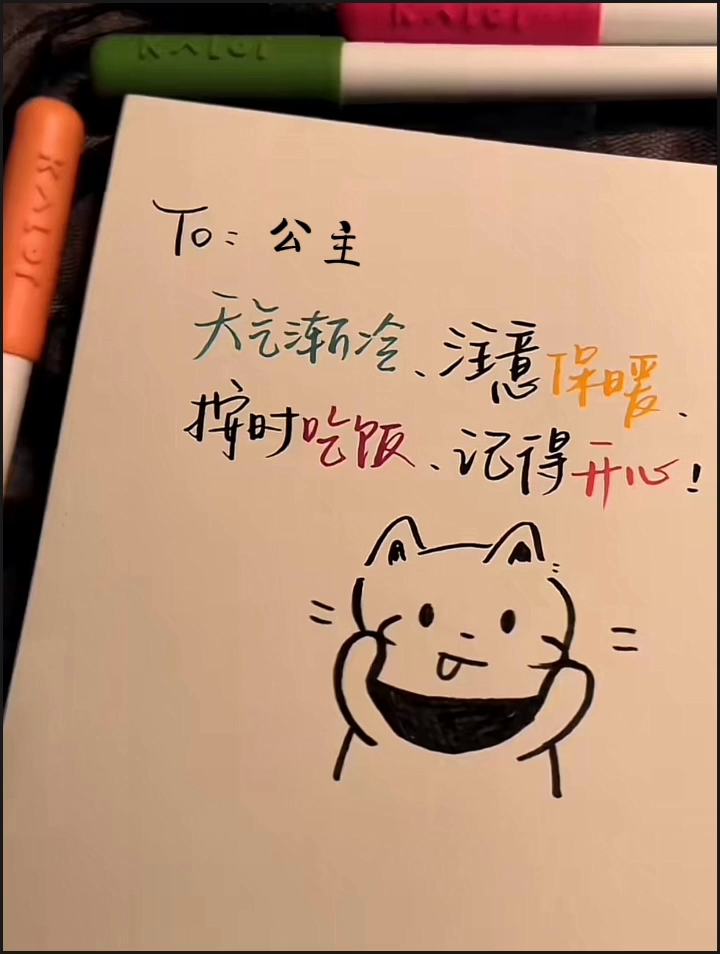 KALOR
KALOR
KALOR
To: 公主
天气渐冷、注意保暖、
按时吃饭、记得开心!